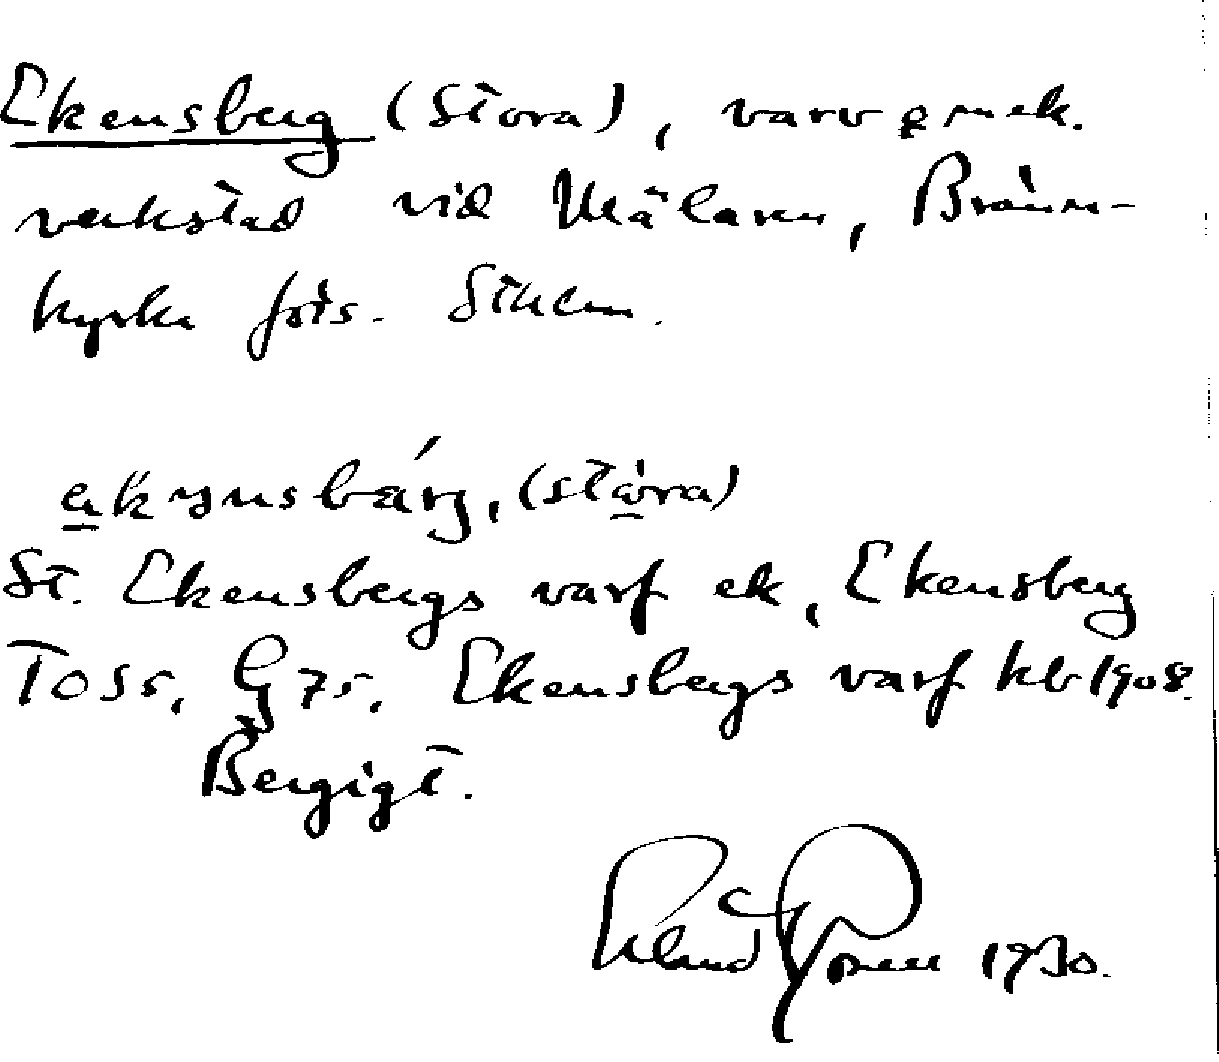 Ekensberg (Stora), varv o mek.
verkstad vid Mälaren, Bränn-
kyrka förs. Sthlm.
(stå̀ra)
St. Ekensbergs varf ek, Ekensberg
Toss, G 75, Ekensbergs varf kb 1908.
Bergigt.
1930.